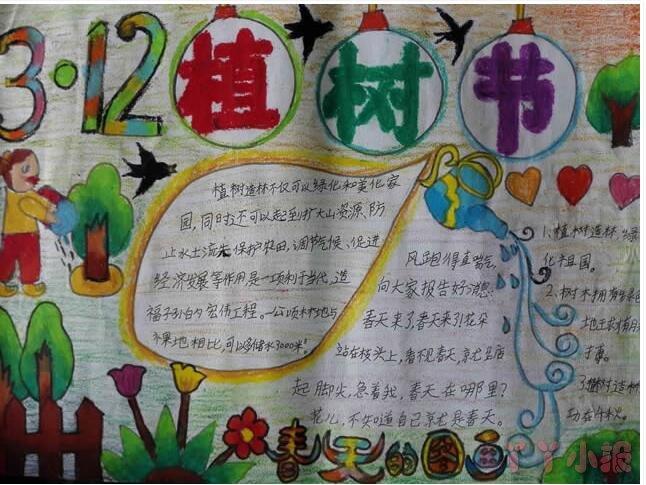 3·12植树节
植树造林不仅可以绿化和美化家
园,同时还可以起到扩大山资源、防
止水土流失保护农田,调节气候、促进
经济发展等作用是一项利于当代,造
福子孙的宏伟工程。一公顷林地与
地相比,可以多储水3000米³
风跑得直喘气,
向大家报告好消息:
春天来了,春天来了!花朵
站在枝头上,看不见春天,就
起脚尖,急着找,春天在哪里?
花儿,不知道自己就是春天。
1、植树造林绿
化祖国。
2、树木拥有
地球
3植树造林
功在千秋。
春天的图画
丫丫小报